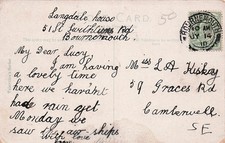 Langdale house
31 St Swithuns Rd
Bournemouth
My Dear Lucy
I am having
a lovely time
here we havan't
had rain yet
Monday we
saw
ships
with love
CARD
50
BOURNEMOUTH
Miss L A
39 Graces Rd
Camberwell
SE